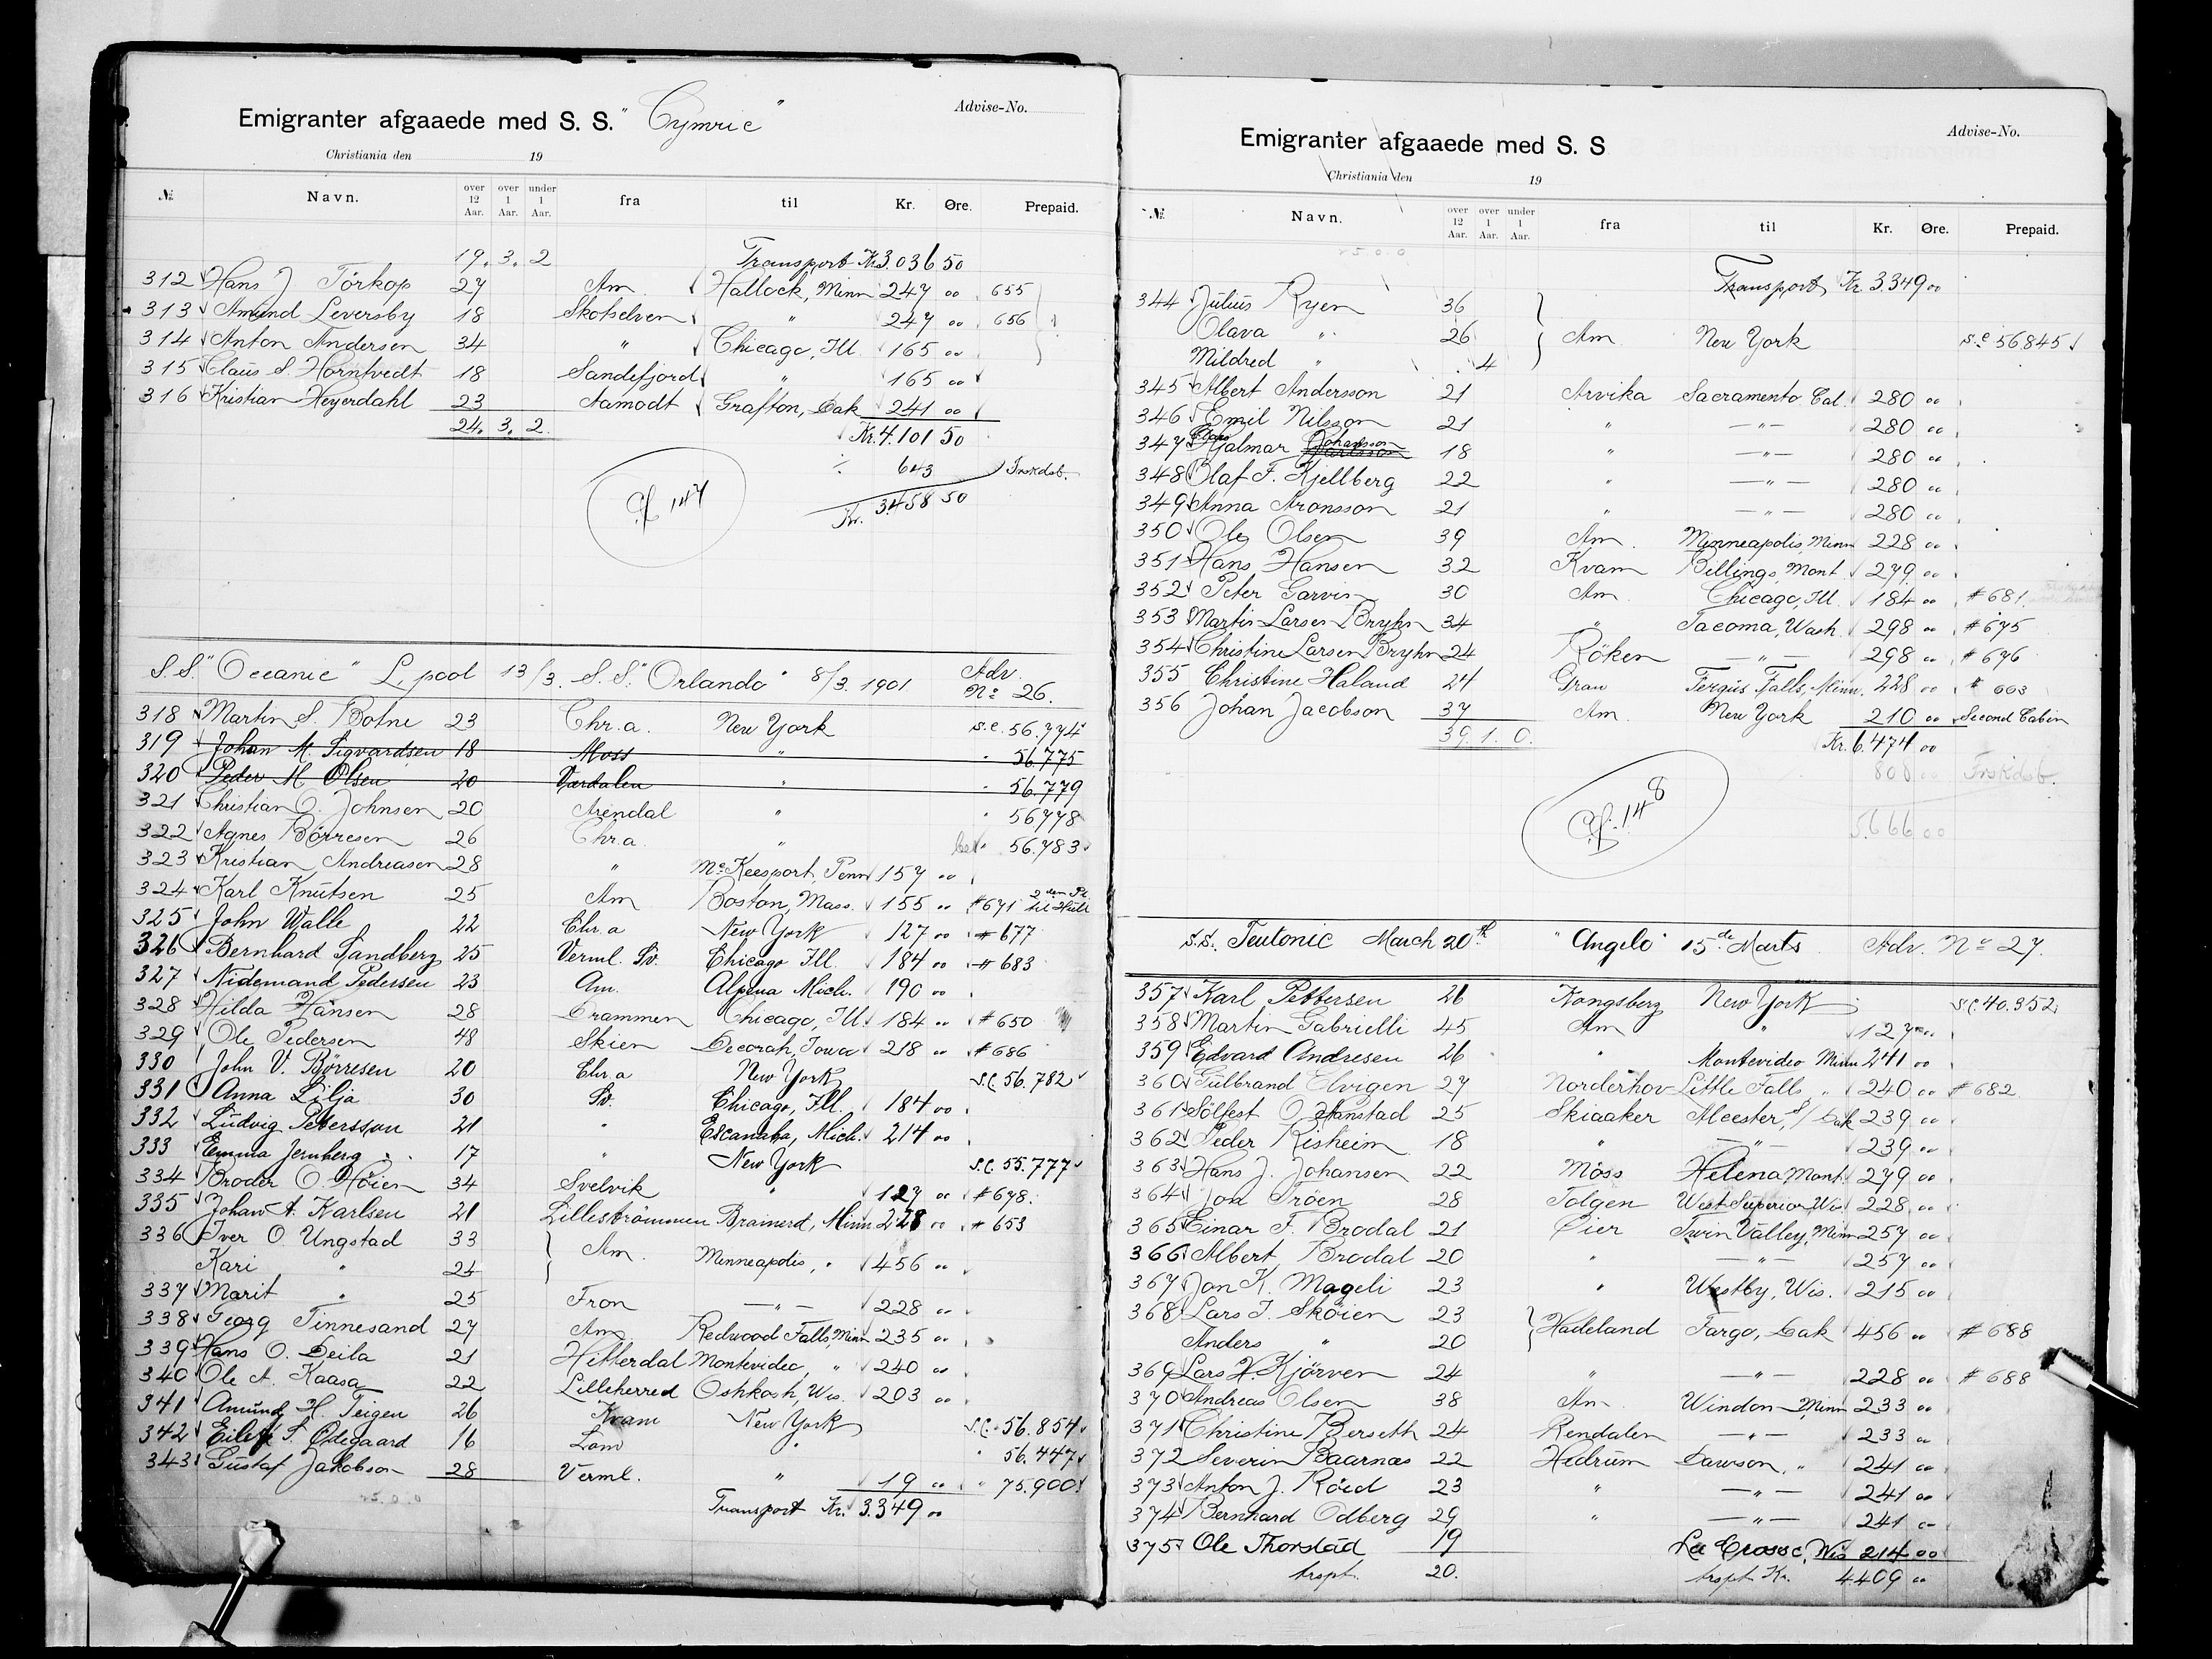 Emigranter afgaaede med S. S. "Cymric"
Advise-No.
Christiania den 19
№ Navn. over 12 Aar. over 1 Aar. under 1 Aar. fra til Kr. Øre. Prepaid.
19. 3. 2 Transport Kr. 3.036 50
312 Hans J. Törkop 27 Am. Hallock, Minn 247 00 655
313 Amund Leversby 18 Skotselven " 247 00 656
314 Anton Andersen 34 " Chicago, Ill. 165 00
315 Claus S. Horntvedt 18 Sandefjord " 165 00
316 Kristian Heyerdahl 23 Aamodt Grafton, Dak 241 00
24. 3. 2. Kr. 4.101 50
÷ 643 Inskdsb.
Kr. 3458 50
Cf 147
S.S. "Oceanic" L,pool 13/3. S.S. "Orlando" 8/3. 1901 Adv. No 26.
318 Martin S. Botne 23 Chr.a. New York s.c. 56.774
319 Johan M. Sigvardsen 18 Moss " " 56.775
320 Peder M. Olsen 20 Værdalen " " 56.779
321 Christian O. Johnsen 20 Arendal " " 56778
322 Agnes Börresen 26 Chr.a. " " 56.783
323 Kristian Andreasen 28 " Mc Keesport, Penn 157 00
324 Karl Knutsen 25 Am Boston, Mass. 155 00 #671 2den Pl. til Hull
325 John Walle 22 Chr. a New York 127 00 #677
326 Bernhard Sandberg 25 Verml. Sv. Chicago Ill. 184 00 #683
327 Nidemand Pedersen 23 Am. Alpena Mich. 190 00
328 Hilda Hansen 28 Drammen Chicago, Ill. 184 00 #650
329 Ole Pedersen 48 Skien Decorah, Iowa 218 00 #686
330 John V. Börresen 20 Chr. a New York S.C. 56.782
331 Anna Lilja 30 Sv. Chicago, Ill. 184 00
332 Ludvig Petersson 21 " Escanaba, Mich. 214 00
333 Emma Jernberg 17 " New York S.C. 55.777
334 Broder O. Höien 34 Svelvik " 127 00 #678.
335 Johan A. Karlsen 21 Lilleströmmen Brainerd, Minn 228 00 #653
336 Iver O. Ungstad 33
Kari " 24 Am. Minneapolis, " 456 00
337 Marit " 25 Fron — " — 228 00
338 Georg Tinnesand 27 Am. Redwood Falls, Minn 235 00
339 Hans O. Deila 21 Hitterdal Montevideo, " 240 00
340 Ole A. Kaasa 22 Lilleherred Oshkosh, Wis. 203 00
341 Amund H. Teigen 26 Kvam New York S.C. 56.854
342 Eilef S. Ødegaard 16 Lom " " 56.447
343 Gustaf Jakobson 28 Verml. " 19 00 " 75.900
Transport Kr. 3.349 00
Emigranter afgaaede med S. S
Advise-No.
Christiania den 19
№ Navn. over 12 Aar. over 1 Aar. under 1 Aar. fra til Kr. Øre. Prepaid.
Transport Kr. 3.349 00
344 Julius Ryen 36
Olava " 26 Am New York s.c. 56.845
Mildred " 4
345 Albert Andersson 21 Arvika Sacramento. Cal. 280 00
346 Emil Nilsson 21 " — " — 280 00
347 Hjalmar Johansson 18 " — " — 280 00
348 Olaf F. Kjellberg 22 " — " — 280 00
349 Anna Aronsson 21 " — " — 280 00
350 Ole Olsen 39 Am. Minneapolis, Minn 228 00
351 Hans Hansen 32 Kvam Billings, Mont. 279 00
352 Peter Garvin 30 Am. Chicago, Ill. 184 00 #681.
353 Martin Larsen Bryhn 34 " Tacoma, Wash. 298 00 #675
354 Christine Larsen Bryhn 24 Röken — " — 298 00 #676
355 Christine Haland 24 Gran Fergus Falls, Minn. 228 00 # 663
356 Johan Jacobson 37 Am. New York 210 00 Second Cabin
39. 1. 0. Kr. 6.474 00
808 00 Inskdsb.
5.666 00
Cf. 148
S.S. Teutonic March 20th "Angelo" 15de Marts Adv. No 27.
357 Karl Pettersen 26 Kongsberg New York S.C. 40.352
358 Martin Gabrielli 45 Am " 127 00
359 Edvard Andresen 26 " Montevideo Minn 241 00
360 Gulbrand Elvigen 27 Norderhov Little Falls " 240 00 #682
361 Sölfest O. Hanstad 25 Skiaaker Meester, S/Dak 239 00
362 Peder Risheim 18 " — " — 239 00
363 Hans J. Johansen 22 Moss Helena Mont. 279 00
364 Jon Tröen 28 Tolgen West Superior, Wis. 228 00
365 Einar F. Brodal 21 Øier Twin Valley, Minn 257 00
366 Albert Brodal 20 — " — 257 00
367 Jon K. Mageli 23 " Westby, Wis. 215 00
368 Lars J. Sköien 23
Anders " 20 Hadeland Fargo, Dak 456 00 # 688
369 Lars H. Kjörven 24 " — " — 228 00 # 688
370 Andreas Olsen 38 Am. Windom Minn 233 00
371 Christine Berseth 24 Rendalen — " — 233 00
372 Severin Baarnæs 22 Hedrum Dawson, " 241 00
373 Anton J. Röed 23 " — " — 241 00
374 Bernhard Odberg 29 " — " — 241 00
375 Ole Thorstad 19 La Crosse, Wis 214 00
trspt. 20. trspt Kr. 4409 00